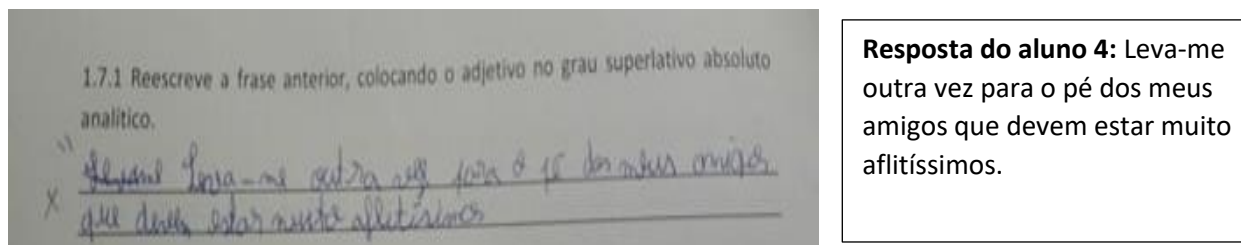 1.7.1 Reescreve a frase anterior, colocando o adjetivo no grau superlativo absoluto
analítico.
Leva-me outra vez para o pé dos meus amigos
que devem estar muito aflitissimos
Resposta do aluno 4: Leva-me
outra vez para o pé dos meus
amigos que devem estar muito
aflitíssimos.